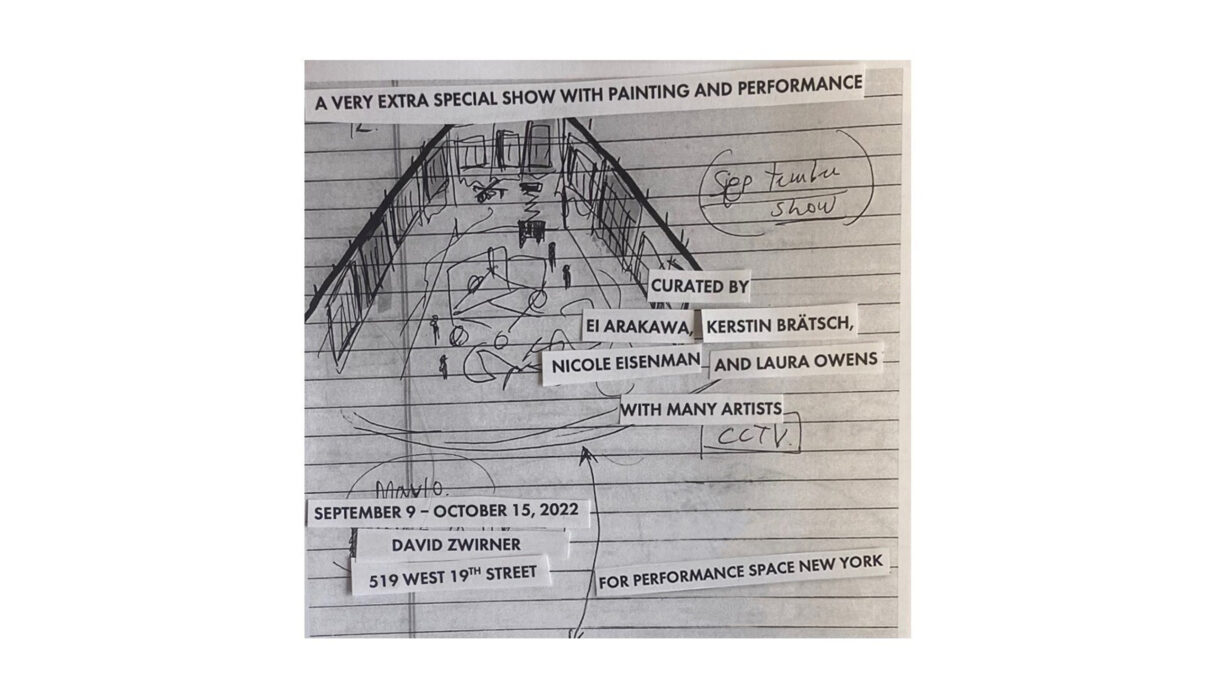 A VERY EXTRA SPECIAL SHOW WITH PAINTING AND PERFORMANCE
12.
September
show
CURATED BY
EI ARAKAWA, KERSTIN BRÄTSCH,
NICOLE EISENMAN AND LAURA OWENS
WITH MANY ARTISTS
CCTV.
SEPTEMBER 9 – OCTOBER 15, 2022
DAVID ZWIRNER
519 WEST 19TH STREET
FOR PERFORMANCE SPACE NEW YORK